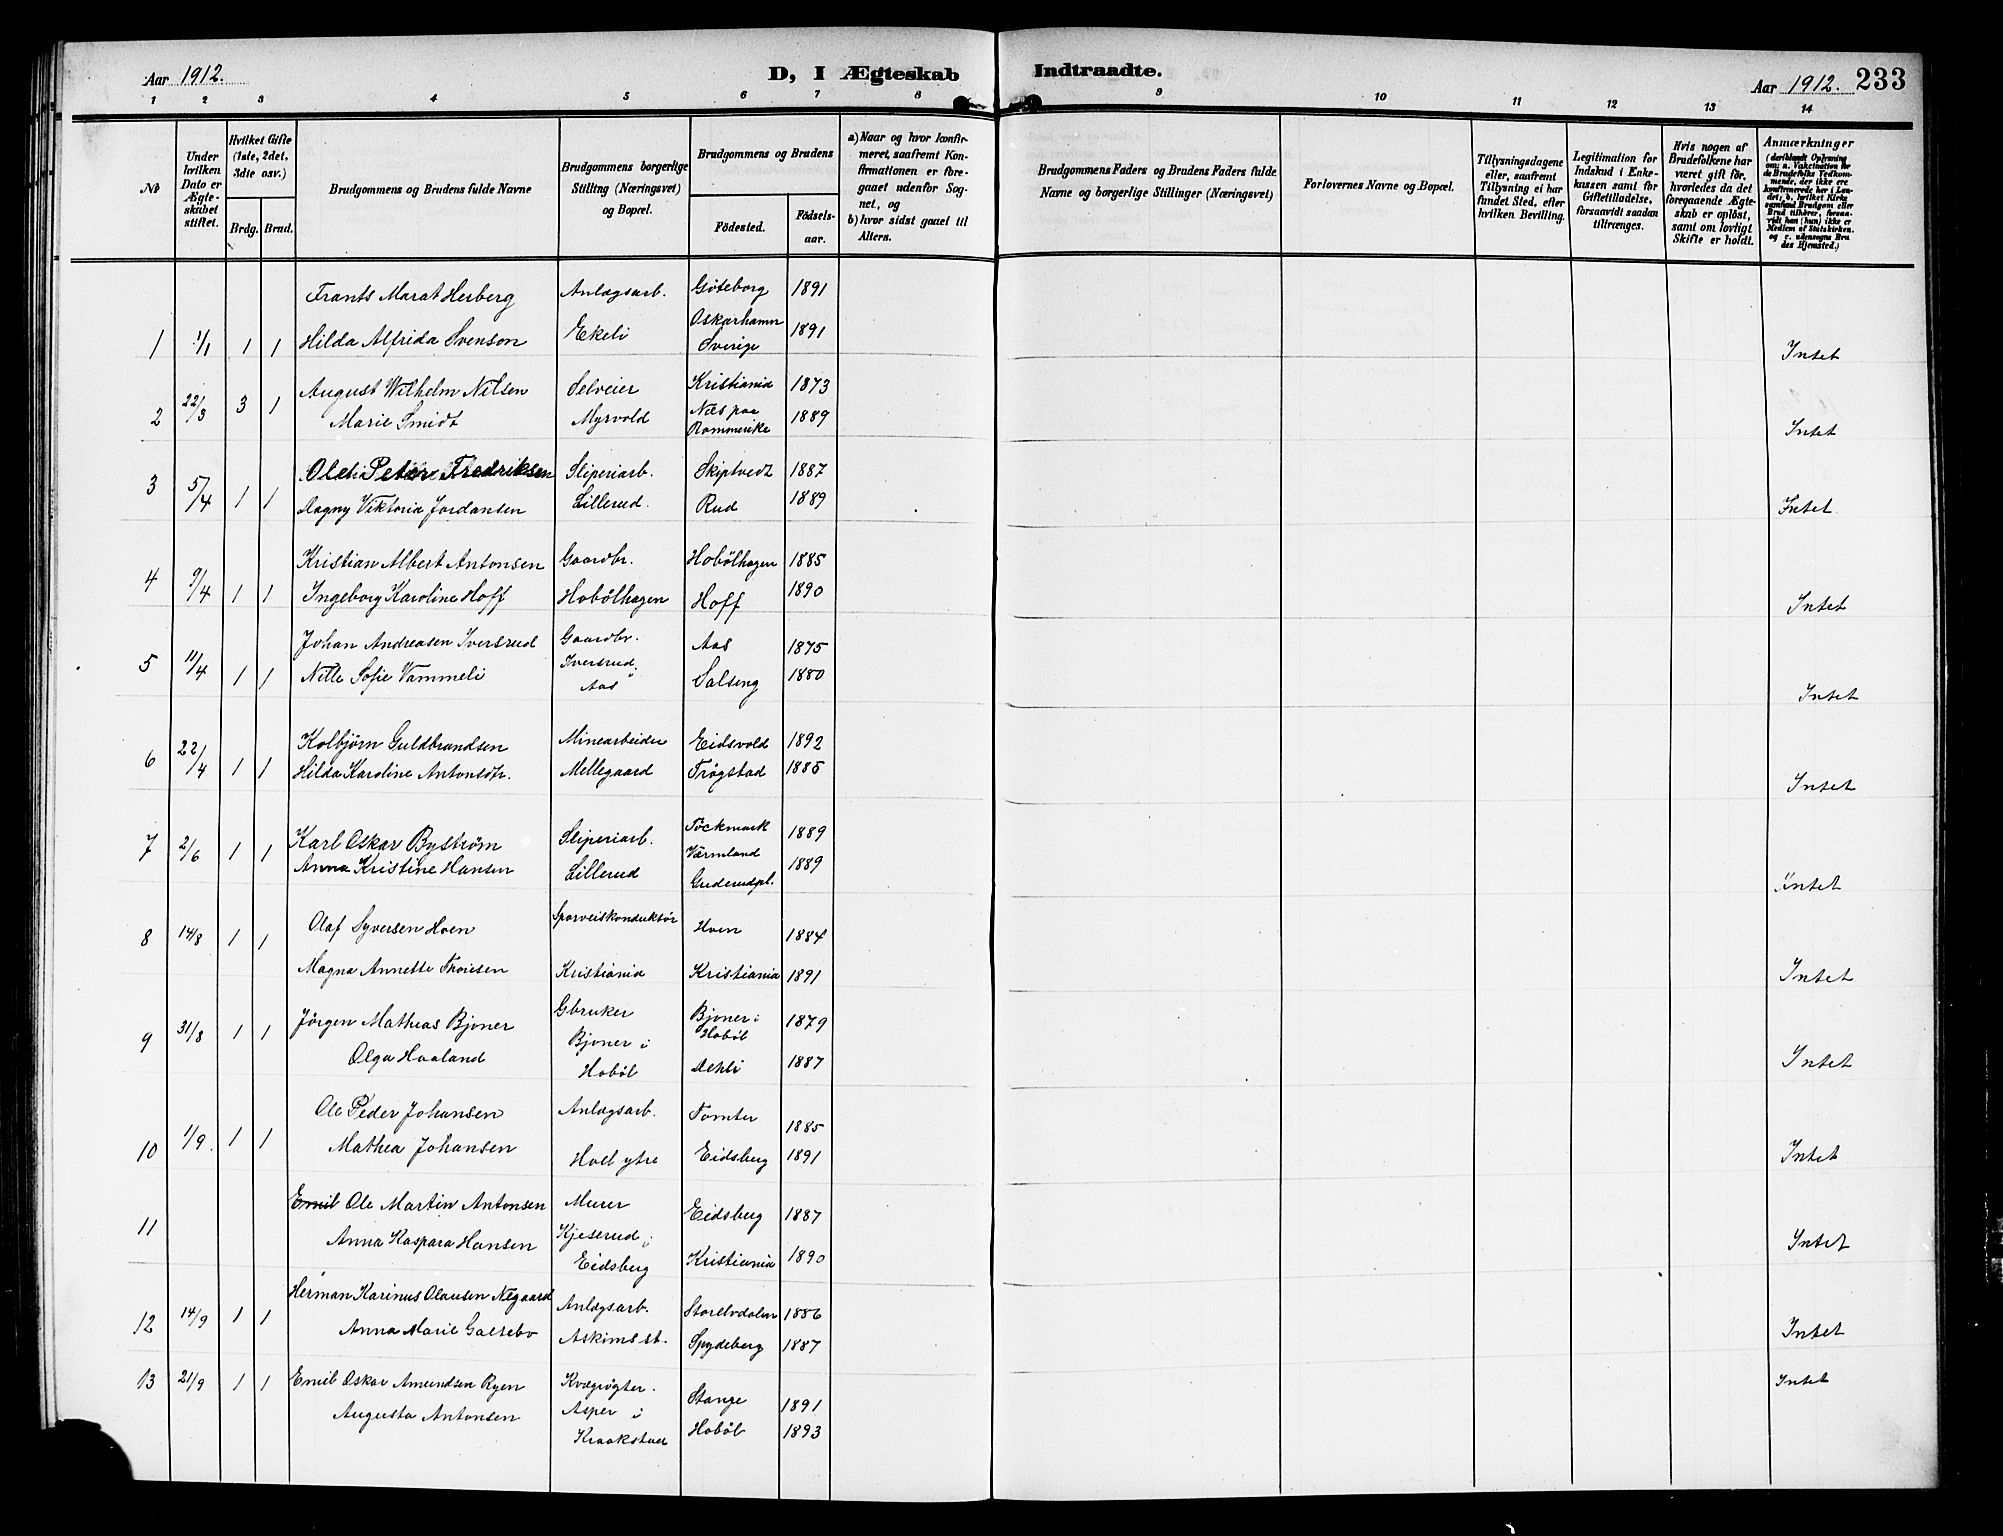 Aar 1912. D, I Ægteskab Indtraadte. Aar 1912. 233
1 2 3 4 5 6 7 8 9 10 11 12 13 14
No
Under hvilken Dato er Ægteskabet stiftet.
Hvilket Gifte (1ste, 2det, 3die osv.)
Brdg. Brud.
Brudgommens og Brudens fulde Navne
Brudgommens borgerlige Stilling (Næringsvei) og Bopæl.
Brudgommens og Brudens
Fødested. Fødselsaar.
a) Naar og hvor konfirmeret, saafremt Konfirmationen er foregaaet udenfor Sognet, og
b) hvor sidst gaaet til Alters.
Brudgommens Faders og Brudens Faders fulde Navne og borgerlige Stillinger (Næringsvei)
Forlovernes Navne og Bopæl.
Tillysningsdagene eller, saafremt Tillysning ei har fundet Sted, efter hvilken Bevilling.
Legitimation for Indskud i Enkekassen samt for Giftetilladelse, forsaavidt saadan tiltrænges.
Hvis nogen af Brudefolkene har været gift før, hvorledes da det foregaaende Ægteskab er opløst, samt om lovligt Skifte er holdt.
Anmærkninger
(deriblandt Oplysning om: a. Vakcination for de Brudefolks Vedkommende, der ikke ere konfirmerede her i Landet; b. hvilket Kirkesamfund Brudgom eller Brud tilhører, forsaavidt han (hun) ikke er Medlem af Statskirken, og c. udensogns Brudes Hjemsted.)
Frants Marat Herberg Anlægsarb. Göteborg 1891
1 1/1 1 1 Hilda Alfrida Svenson Ekeli Oskarhamn Sverige 1891 Intet
August Wilhelm Nilsen Selveier Kristiania 1873
2 22/3 3 1 Marie Smidt Myrvold Næs paa Rommerike 1889 Intet
Ole Peter Fredriksen Sliperiarb. Skiptvedt 1887
3 5/4 1 1 Aagny Viktoria Jordansen Lillerud. Rud 1889 Intet
Kristian Albert Antonsen Gaardbr. Hobølhagen 1885
4 9/4 1 1 Ingeborg Karoline Hoff Hobølhagen Hoff 1890 Intet
Johan Andreasen Iversrud Gaardbr. Aas 1875
5 11/4 1 1 Nille Sofie Vammeli Iversrud i Aas Salseng 1880 Intet
Kolbjørn Guldbrandsen Minearbeider Eidsvold 1892
6 22/4 1 1 Hilda Karoline Antonsdtr. Mellegaard Trøgstad 1885 Intet
7 2/6 1 1 Karl Oskar Byström Sliperiarb. Töckmark Värmland 1889
Anna Kristine Hansen Lillerud Guderudpl. 1889 Intet
8 14/8 1 1 Olaf Syversen Hoen Sporveiskonduktør Hoen 1884
Magna Annette Thoresen Kristiania Kristiania 1891 Intet
9 31/8 1 1 Jørgen Mathias Bjoner Gbruker Bjoner i Hobøl 1879
Olga Haaland Bjoner i Hobøl Dehli 1887 Intet
Ole Peder Johansen Anlægsarb. Tomter 1885
10 1/9. 1 1 Mathea Johansen Holl ytre Eidsberg 1891 Intet
Emil Ole Martin Antonsen Murer Eidsberg 1887
11 Anna Kaspara Hansen Kjeserud i Eidsberg Kristiania 1890 Intet
Herman Karinus Olausen Negaard Anlægsarb. Storelvdalen 1886
12 14/9 1 1 Anna Marie Galtebo Askim st. Spydeberg 1887 Intet
13 21/9 1 1 Emil Oskar Amundsen Ryen Kvægrøgter. Stange 1891 Intet
Augusta Antonsen Asper i Kraakstad Hobøl 1893